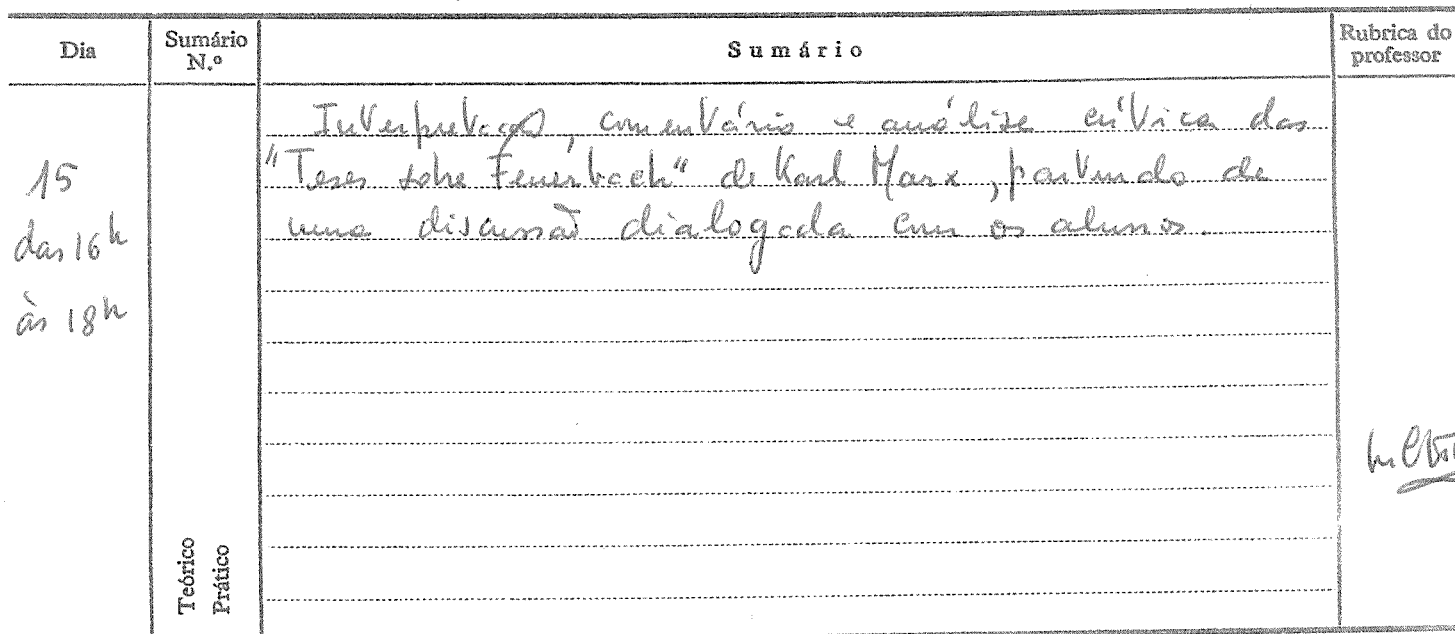 Dia
Sumário N.º
Sumário
Rubrica do professor
15
das 16h
às 18h
Interpretação, comentário e análise crítica das
"Teses sobre Feuerbach" de Karl Marx, partindo de
uma discussão dialogada com os alunos.
Teórico
Prático